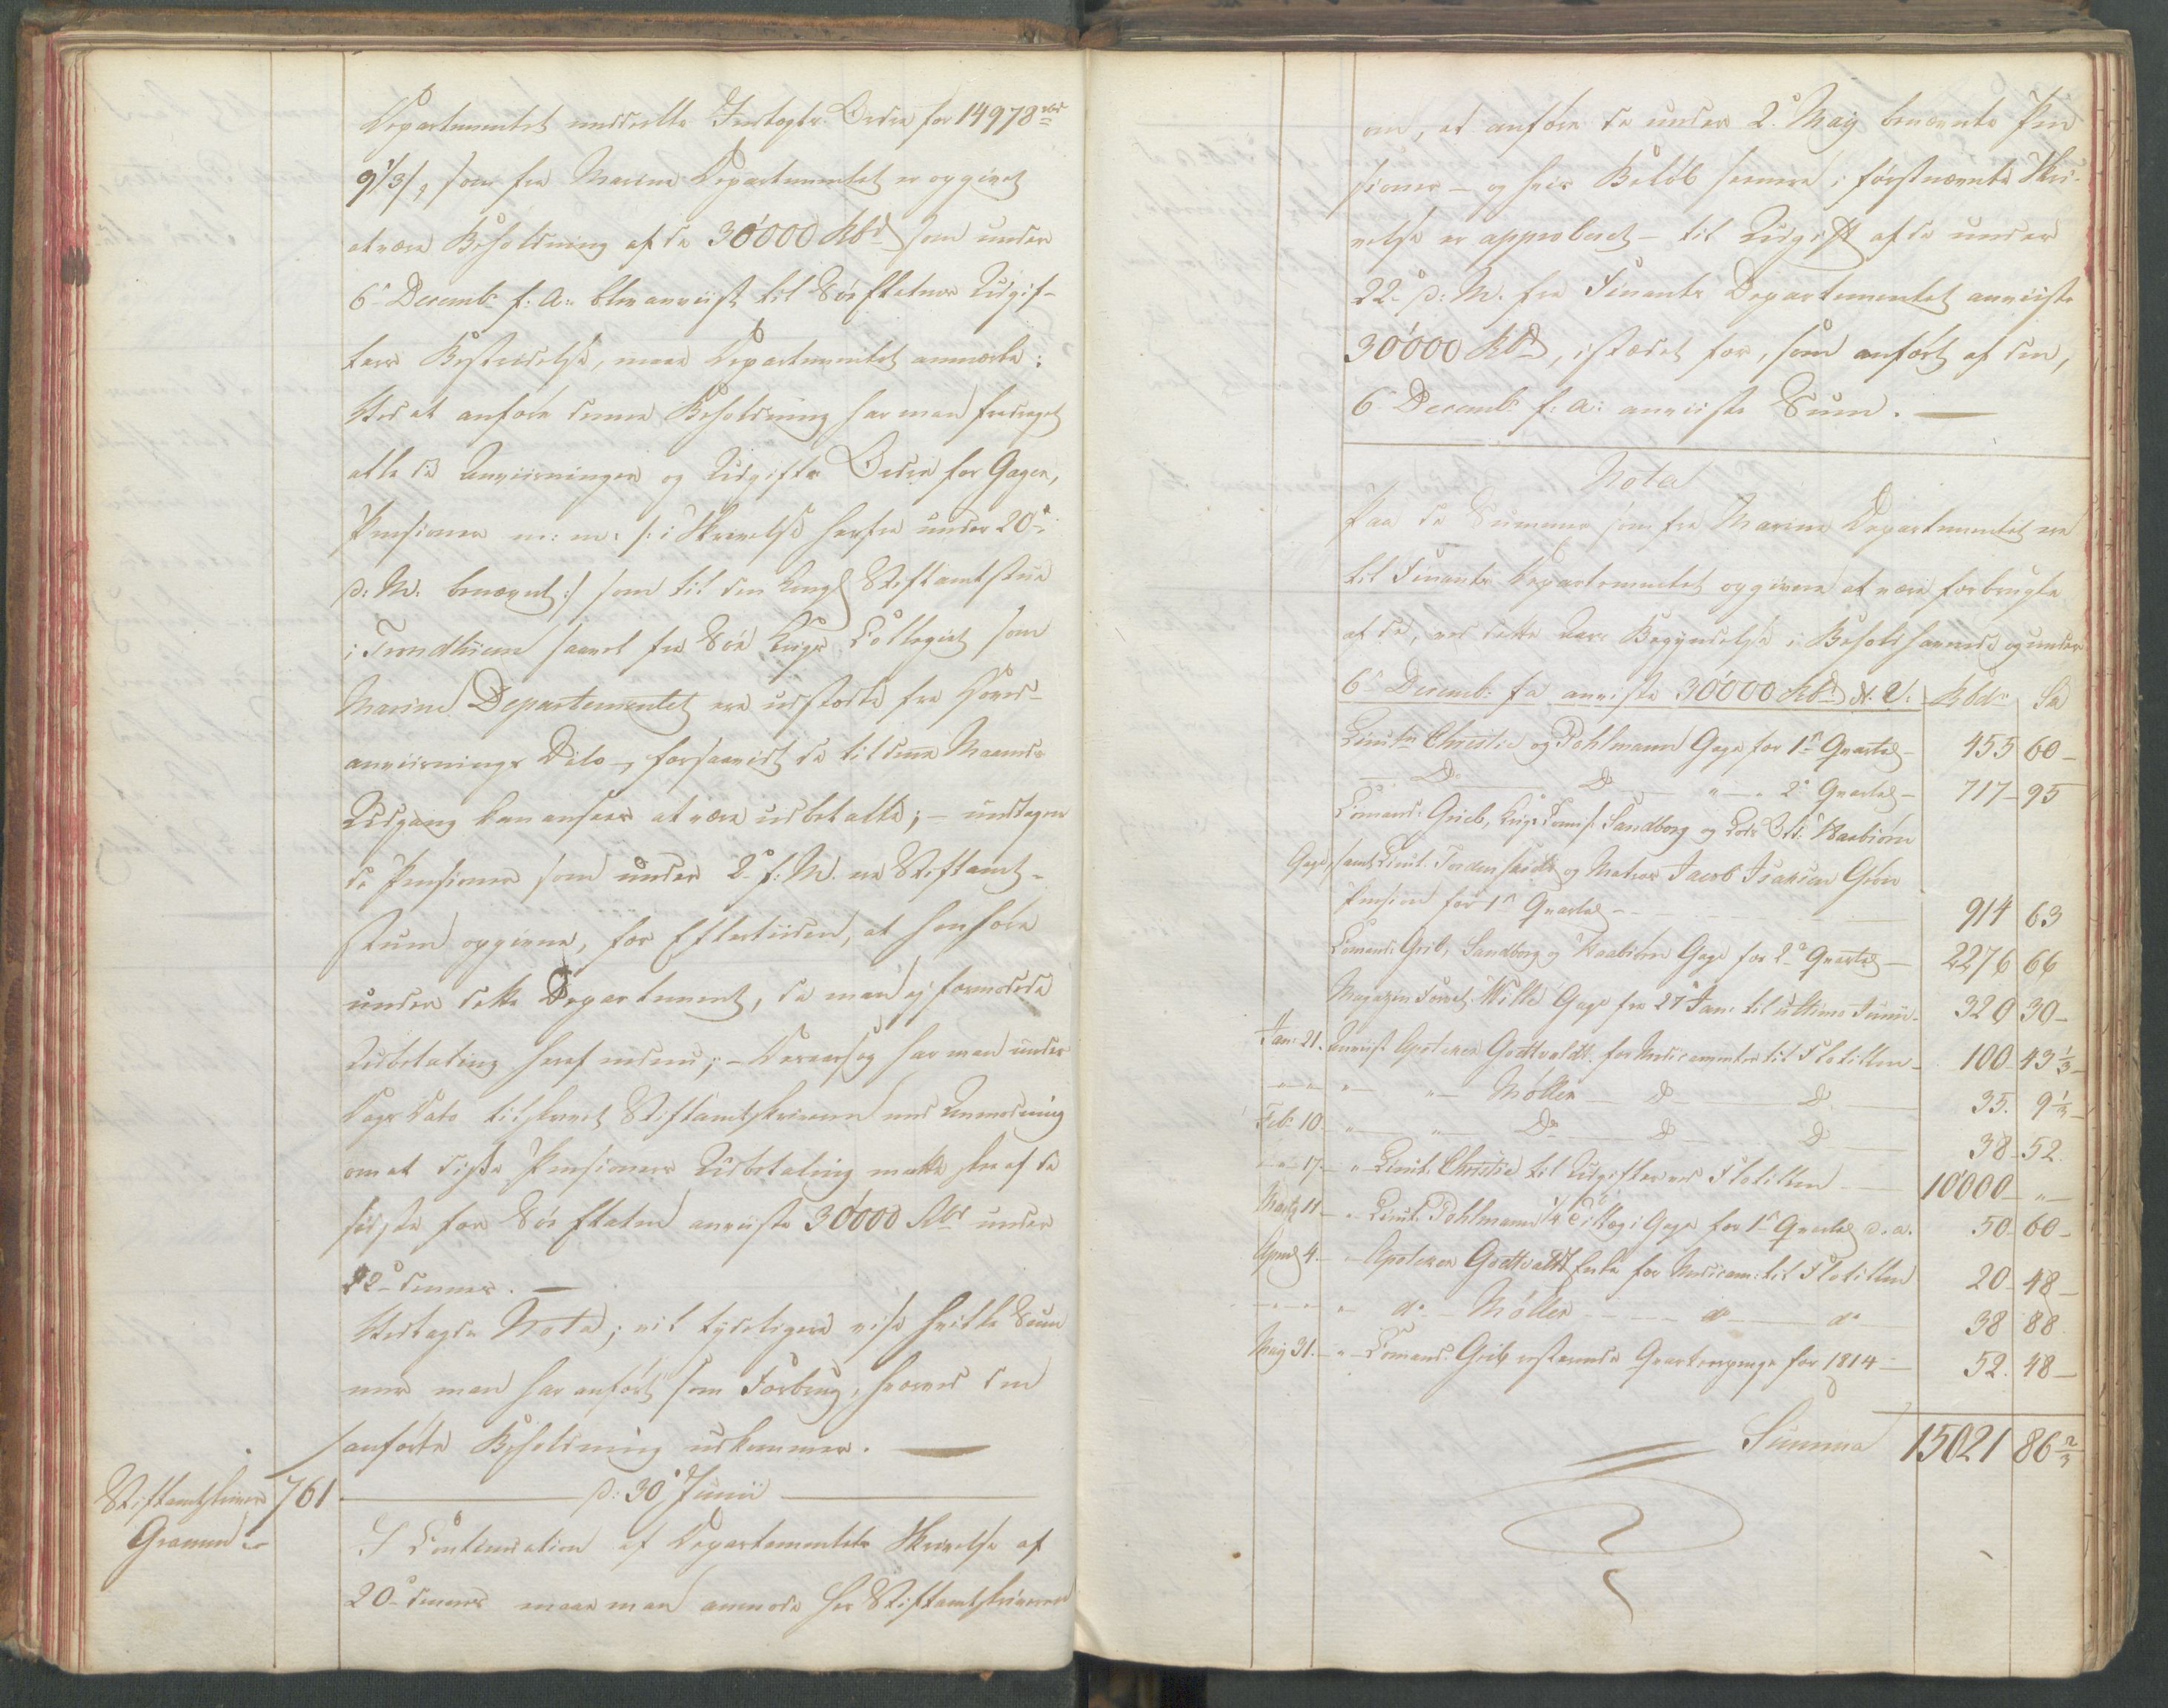 Departementet meddeelte Indtægts Ordre for 14978 rbd
9 1/3 s, som fra Marine Departementet er opgivet
at være Beholdning af de 30'000 Rbd som under
6te Decemb: f: A: blev anviist til Søe Etatens Udgif-
ters Bestridelse, maae Departementet anmærke:
Ved at anføre denne Beholdning har man fradraget
alle de Anviisninger og Udgifts Ordre for Gager,
Pensioner m: m: /: i Skrivelse herfra under 20de
d: M: benævnt :/ som til den Kongl Stiftamtstue
i Trondhiem saavel fra Søe Krigs Collegiet som
Marine Departementet ere udstædte fra Hoved-
anviisnings Dato –, forsaavidt de til denne Maaneds
Udgang kan ansees at være udbetalte; – undtagen
de Pensioner som under 2de f: M. ere Stiftamt-
stuen opgivne, for Eftertiiden, at henføre
under dette Departement, da man ej formodede
Udbetaling heraf endnu; – Derover og har man under
Dags Dato tilskrevet Stiftamtskriveren med Anmodning
om at disse Pensioners Udbetaling maatte skee af de
sidste for Søe Etaten anviiste 30'000 Rbd under
22de dennes. –
Vedlagde Nota, vil tydeligere vise hvilke Sum
mer man har anført som Forbrug, hvorved den
anførte Beholdning udkommer. –
Stiftamtskriver 761 d: 30 Junii
Gramm
I Continuation af Departementets Skrivelse af
20de dennes maae man anmode Hr Stiftamtskriveren
om, at anføre de under 2de Maij benævnte Pen
sioner – og hvis Beløb senere i førstnævnte Skri-
velse er approberet – til Udgift af de under
22de d: M. fra Finants Departementet anviiste
30'000 Rbd, istædet for, som anført af den,
6te Decemb: f: A: anviiste Sum. –
Nota
Paa de Summer som fra Marine Departementet ere
til Finants Departementet opgivne at være forbrugte
af de, ved dette Aars Begyndelse i Behold havende og under
6te Decemb: f a anviste 30'000 Rbd N. V: Rbdr Sk
Lieutn Christie og Pohlmann Gage for 1ste Quartal – 455 60 –
– Do – Do – " – " 2det Quartal – 717 – 95
Comand: Grieb, Krigs Comis: Sandborg og Waabiørn
Gage, samt Lieut. Tordenskiold og Matros Jacob Isaksen Grøn
Pension for 1ste Quartal – 914 63
Comand: Grib, Sandborg og Waabiørn Gage for 2det Quartal – 2276 66
Magazin Forvalt. Wille Gage fra 27 Jan: til ultimo Junii – 320 30 –
Jan: 21. Anviist Apoteker Godtvaldt for Medicamenter til Flotillen – 100 – 43 1/3 –
" " " – " – Møller – Do – Do – 35. 9 1/3 –
Feb: 10. " – " – Do – Do – Do – 38 – 52.
" – 17. – " – Lieut. Christie til Udgifter ved Flotillen – 10'000 – " –
Martz 11 – " – Lieut. Pohlmann 1/4 Tillæg i Gage for 1ste Quartal d. a. 50 – 60 –
April 4. – " Apoteker Godtvaldt for Medicam: til Flotillen 20 – 48 –
" – " – " do – Møller – do – do 38 88.
Maij 31. – " – Comand. Grib resterende Quarteerpenge for 1814 – 52. 48 –
Summa 15021 86 2/3